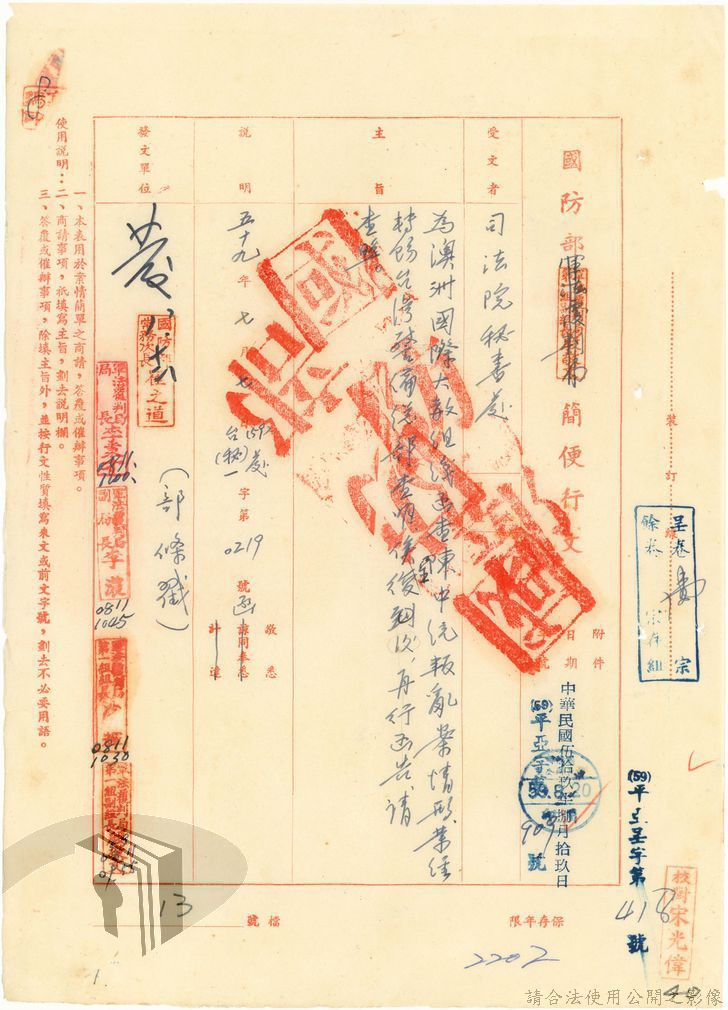 裝訂線
呈卷 宗
餘卷 宗存組
(59)平亞呈字第418號
校對宋光偉
國防部軍法覆判局簡便行文
附件
日期
中華民國伍拾玖年捌月拾玖日
(59)平亞字第
59.8.20
號
受文者
司法院秘書處
主旨
為澳洲國際大赦組織函查陳中統叛亂案情形業經
轉飭台灣警備總部查明俟復到後再行函告請
查照。
說明
五十九年七月七
(59)處台(秘一)字第0219號函
敬悉
計達
發文單位
國防部常務次長
之道
(部條戳)
軍法覆判局局長
0811
1045
0811
1030
使用說明：
一、本表用於案情簡單之商請，答覆或催辦事項。
二、商請事項，祇填寫主旨，劃去說明欄。
三、答覆或催辦事項，除填主旨外，並按行文性質填寫來文或前文字號，劃去不必要用語。
保存年限
檔號 13
2202
1.
請合法使用公開之影像